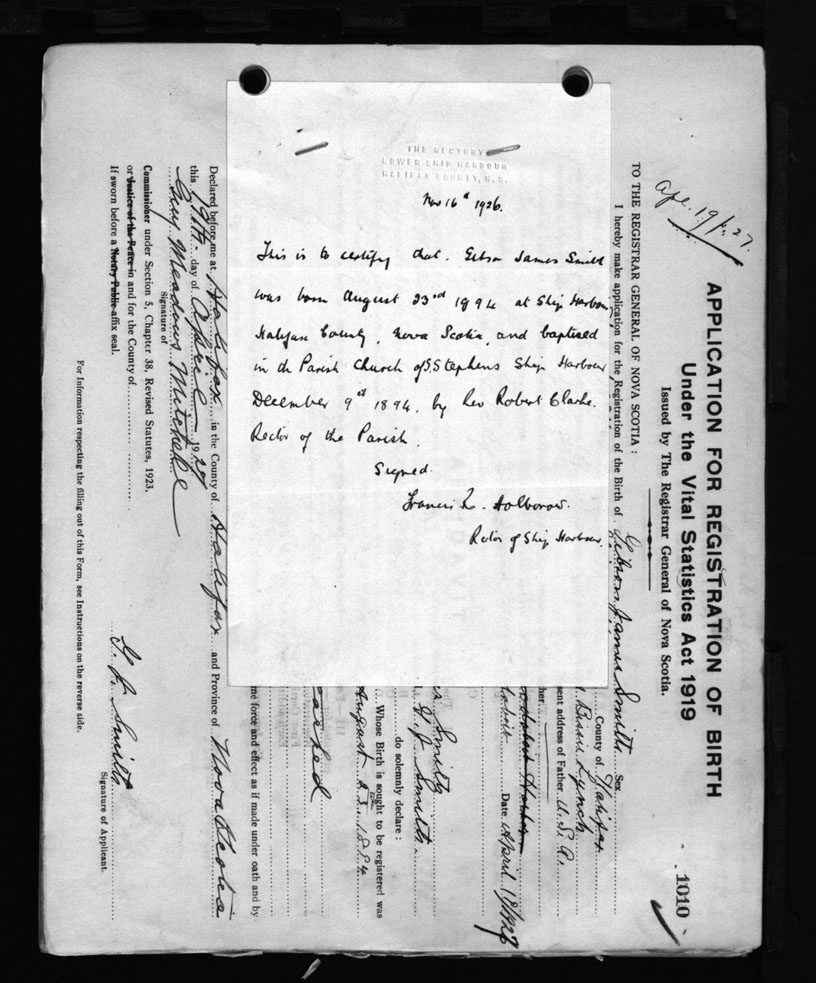 THE RECTORY
LOWER SHIP HARBOUR
HALIFAX COUNTY, N.S.
Nov 16th 1926.
This is to certify that. Gibson James Smith
was born August 23rd 1894 at Ship Harbour
Halifax County, Nova Scotia, and baptised
in the Parish Church of S. Stephens Ship Harbour
December 9th 1894, by Rev Robert Clarke.
Rector of the Parish.
Signed.
Francis L. Holborow.
Rector of Ship Harbour.
Ape. 19/27.
APPLICATION FOR REGISTRATION OF BIRTH
Under the Vital Statistics Act 1919
Issued by The Registrar General of Nova Scotia.
1010
TO THE REGISTRAR GENERAL OF NOVA SCOTIA:
I hereby make application for the Registration of the Birth of Gibson James Smith Sex
County of Halifax
Bessie Lynch
sent address of Father U.S.A.
her
Date April 19/1927
Smith
G. J. Smith
do solemnly declare:
Whose Birth is sought to be registered was
August 23. 1894
ached
me force and effect as if made under oath and by
Declared before me at Halifax in the County of Halifax and Province of Nova Scotia
this 19th day of April 1927
Guy Meadows Mitchell
Signature of
Commissioner under Section 5, Chapter 38, Revised Statutes, 1923.
or Justice of the Peace in and for the County of
If sworn before a Notary Public affix seal.
G. J. Smith
Signature of Applicant.
For Information respecting the filling out of this Form, see Instructions on the reverse side.